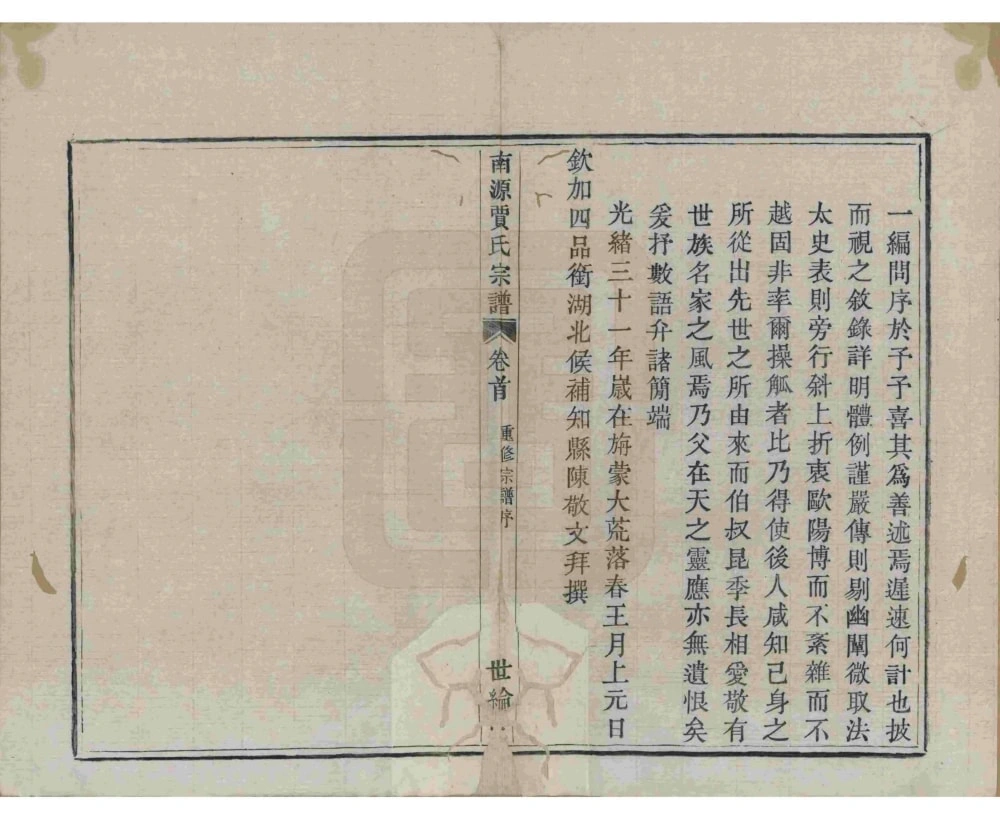 一編問序於予予喜其爲善述焉遲速何計也披
而視之敘錄詳明體例謹嚴傳則剔幽闡微取法
太史表則旁行斜上折衷歐陽博而不紊雜而不
越固非率爾操觚者比乃得使後人咸知己身之
所從出先世之所由來而伯叔昆季長相愛敬有
世族名家之風焉乃父在天之靈應亦無遺恨矣
爰抒數語弁諸簡端
光緒三十一年嵗在旃蒙大荒落春王月上元日
欽加四品銜湖北候補知縣陳敬文拜撰
南源賈氏宗譜
卷首
重修宗譜序
世綸